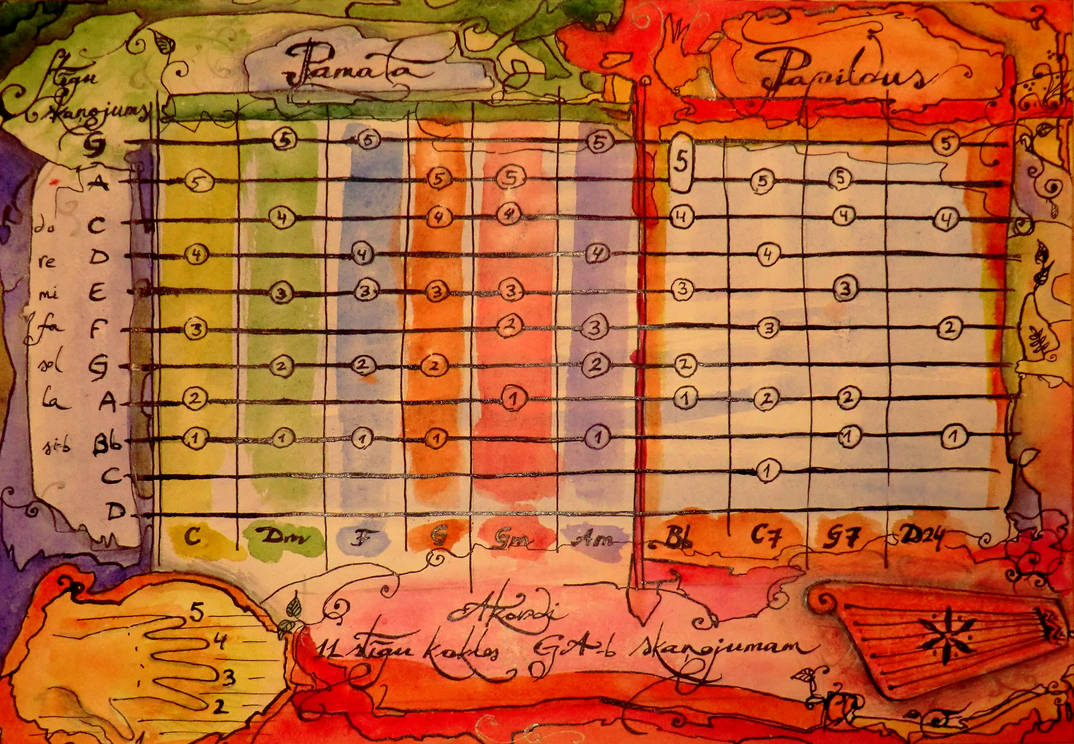 Stīgu
skaņojums
Pamata
Papildus
G 5 5 5 5 5
A 5 5 5 5 5
do C 4 4 4 4 4 4
re D 4 4 4 4
mi E 3 3 3 3 3 3
fa F 3 2 3 3 2
sol G 2 2 2 2 2
la A 2 1 1 2 2
si-b Bb 1 1 1 1 1 1 1
C 1
D
C Dm F G Gm Am Bb C7 G7 D24
5
4
3
2
1
Akordi
11 stīgu kokles GA-b skaņojumam